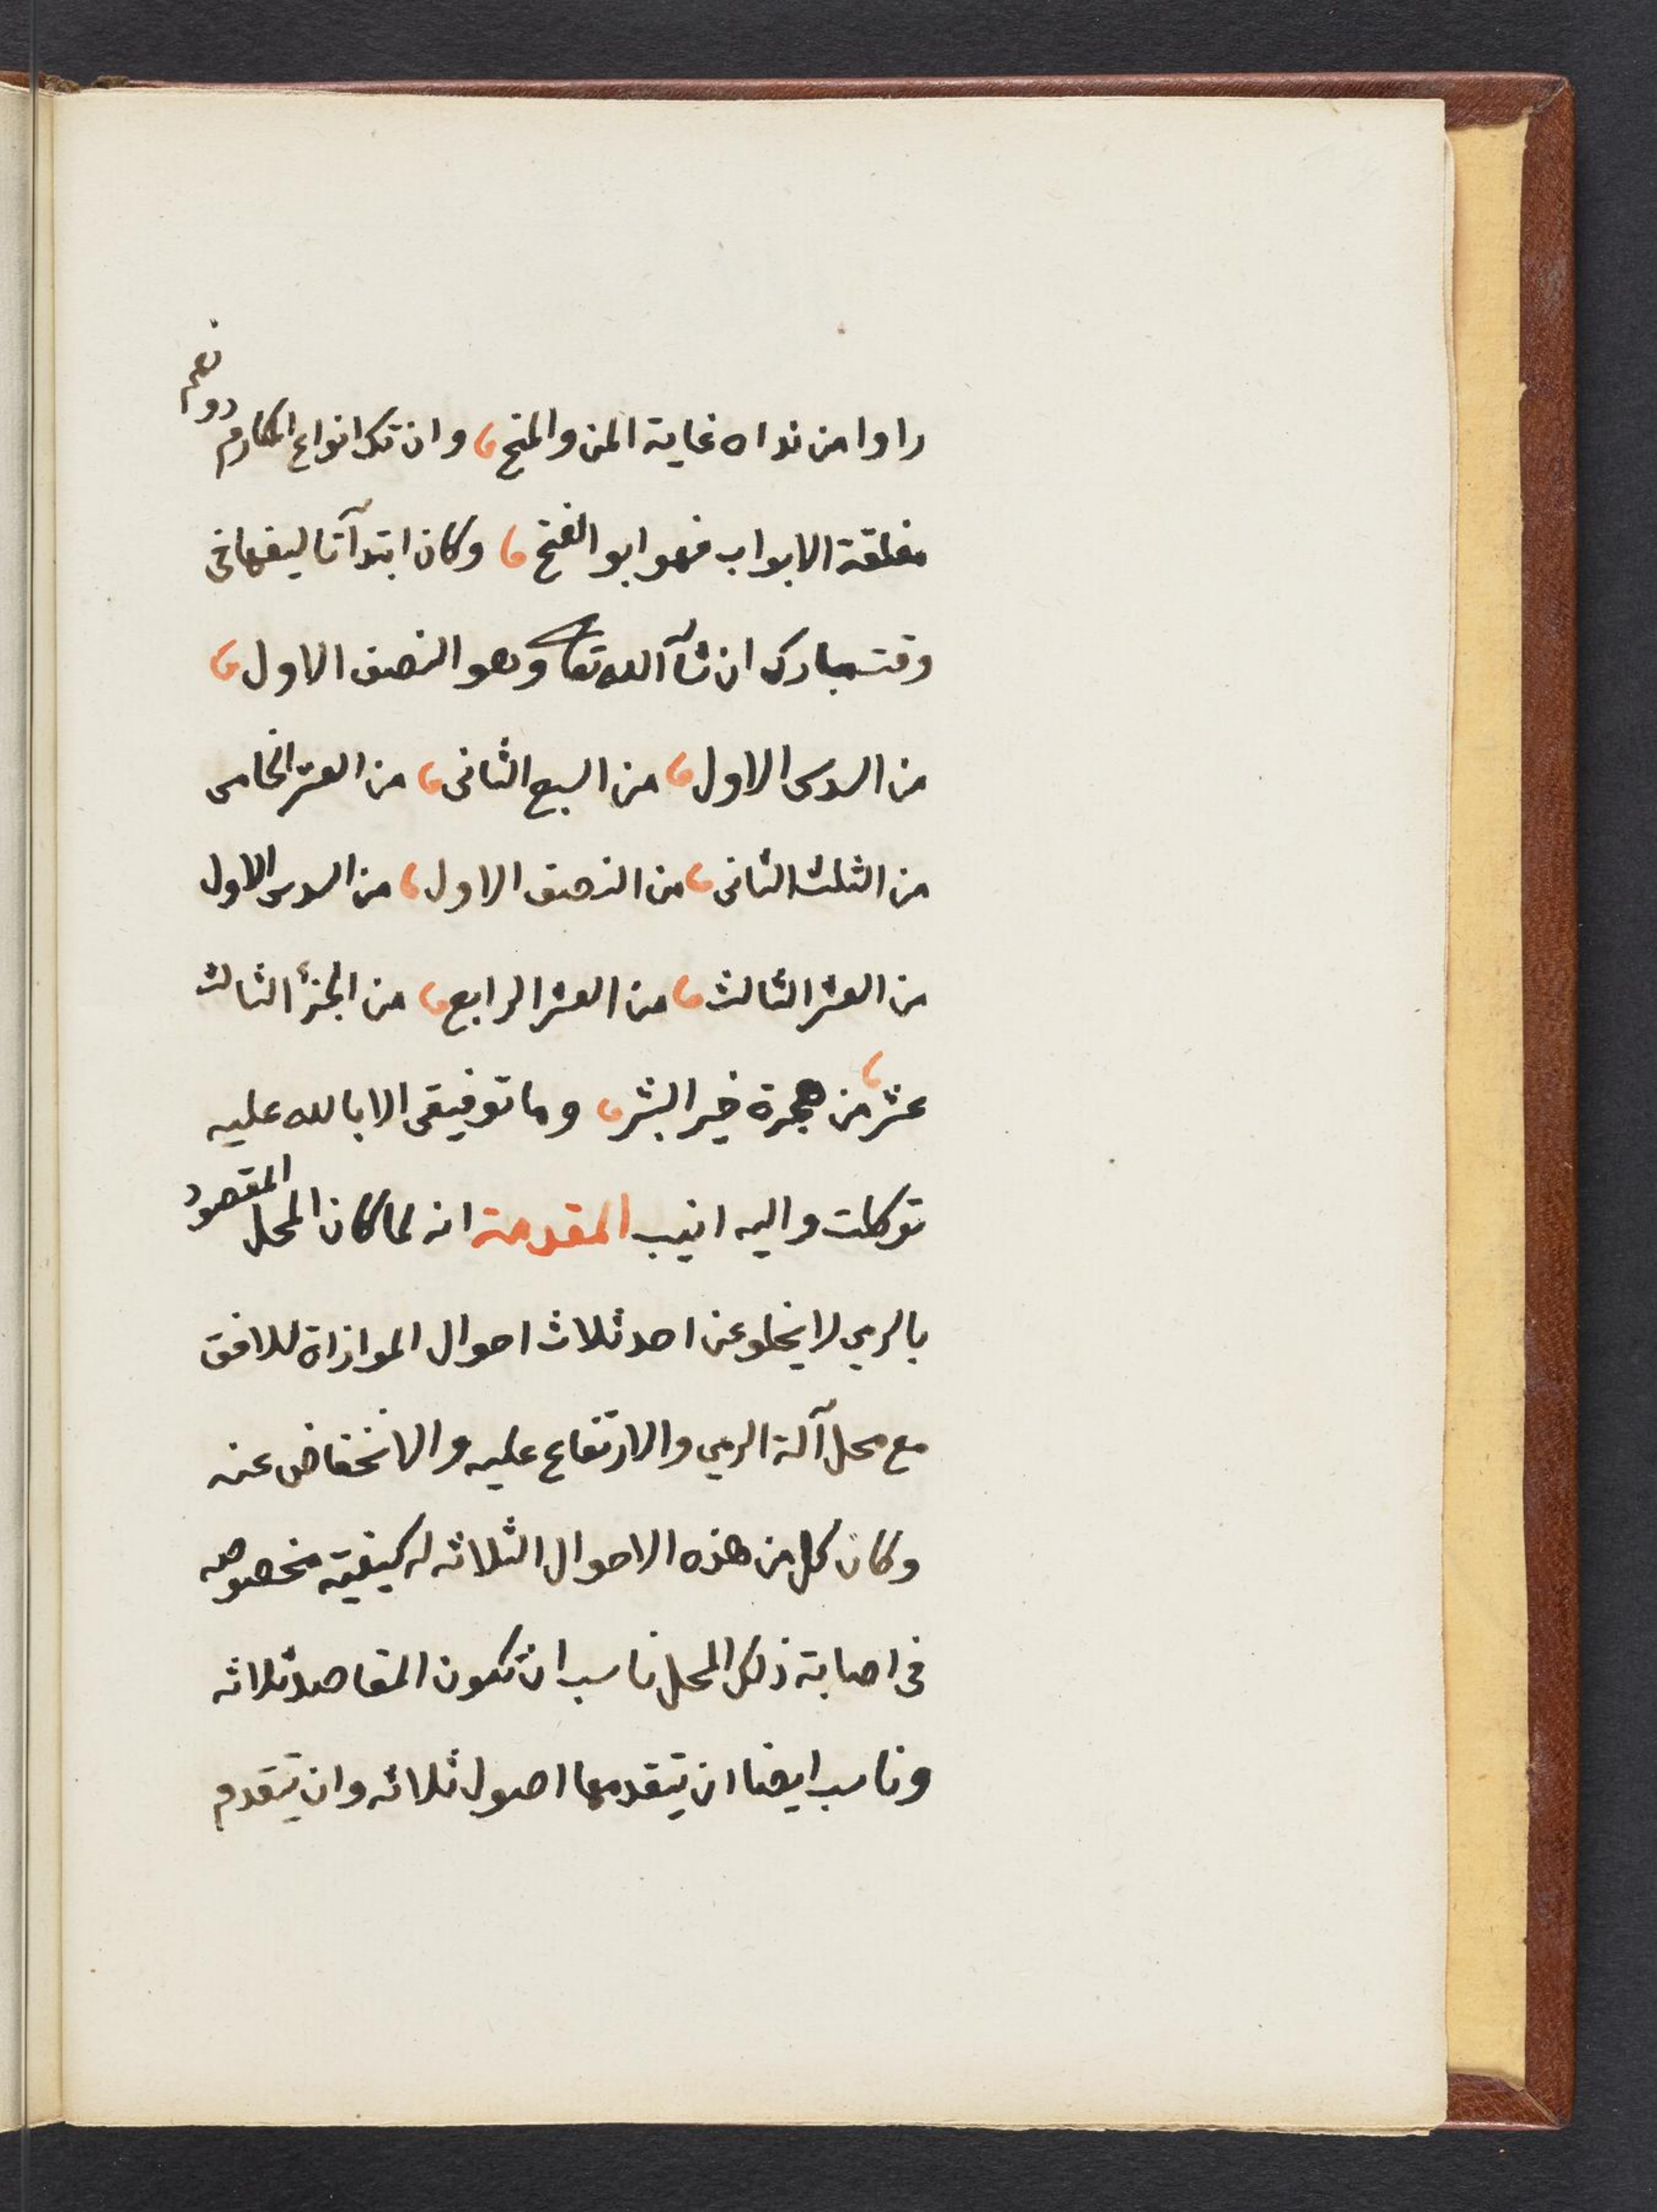 راوا من نداه غاية المن والمنح وان تك انواع المكارم دونهم
مغلقة الابواب فهو ابو الفتح وكان ابتدآ تاليفها فى
وقت مبارك ان شآ الله تعا وهو النصف الاول
من السدس الاول من السبع الثانى من العشر الخامس
من الثلث الثانى من النصف الاول من السدس الاول
من العشر الثالث من العشر الرابع من الجزء الثالث
عشر من هجرة خير البشر وما توفيقى الا بالله عليه
توكلت واليه انيب المقدمة انه لما كان المحل المقصود
بالرمي لا يخلو عن احد ثلاث احوال الموازاة للافق
مع محل آلة الرمي والارتفاع عليه والانخفاض عنه
وكان كل من هذه الاحوال الثلاثه له كيفية مخصوصه
فى اصابة ذلك المحل ناسب ان تكون المقاصد ثلاثه
وناسب ايضا ان يتقدمها اصول ثلاثه وان يتقدم